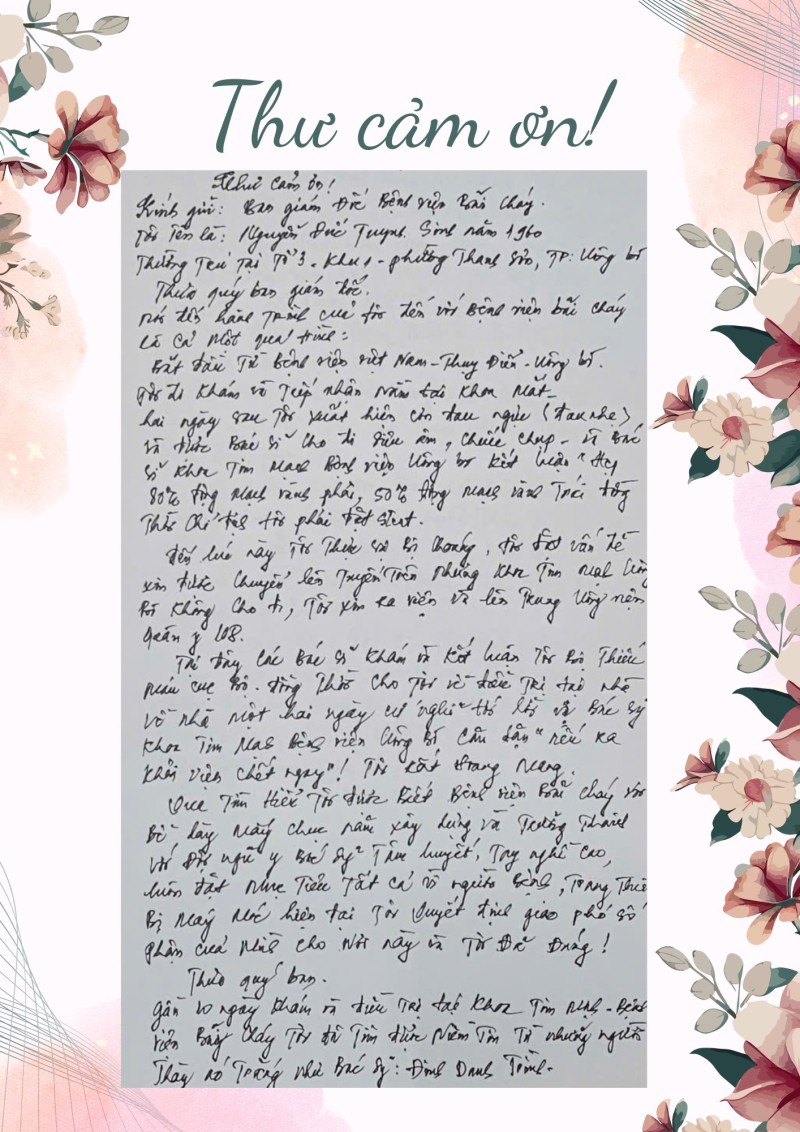 Thư cảm ơn!
Thư cảm ơn!
Kính gửi: Ban giám đốc Bệnh viện Bãi Cháy.
Tôi Tên là: Nguyễn Đức Tuynh. Sinh năm 1960
Thường Trú Tại Tổ 3. Khu 1 - phường Thanh Sơn, TP: Uông bí
Thưa quý ban giám đốc.
Nói đến hành Trình của tôi đến với Bệnh viện bãi cháy
là cả một quá trình:
Bắt đầu Từ Bệnh viện việt Nam - Thụy Điển - Uông bí.
Tôi đi khám và Tiếp nhận nằm tại khoa Mắt -
hai ngày sau Tôi xuất hiện cơn đau ngực (đau nhẹ)
và được Bác sĩ cho đi siêu âm, chiếu chụp - và Bác
sĩ khoa Tim mạch Bệnh viện Uông bí kết luận "Hẹp
80% động mạch vành phải, 50% động mạch vành Trái đồng
Thời chỉ định tôi phải đặt stent.
đến lúc này Tôi Thực sự Bị choáng, tôi đặt vấn đề
xin được chuyển lên Tuyến Trên nhưng khoa Tim mạch Uông
Bí không cho đi, Tôi xin ra viện và lên Trung Ương viện
Quân y 108.
Tại đây các Bác sĩ khám và kết luận Tôi Bị Thiếu
máu cục Bộ. đồng Thời cho Tôi về điều Trị tại nhà
về nhà một hai ngày cứ nghĩ và Bác sỹ
khoa Tim mạch Bệnh viện Uông Bí căn dặn "nếu ra
khỏi viện chết ngay"! Tôi rất hoang mang.
Qua Tìm Hiểu Tôi được Biết Bệnh viện Bãi cháy với
Bề dày mấy chục năm xây dựng và Trưởng Thành
với đội ngũ y Bác sỹ Tâm huyết, Tay nghề cao,
luôn đặt mục Tiêu Tất cả vì người Bệnh, Trang Thiết
Bị máy móc hiện đại Tôi Quyết định giao phó số
phận của mình cho nơi này và Tôi Đã Đúng!
Thưa quý ban.
Gần 10 ngày khám và điều Trị tại khoa Tim mạch - Bệnh
viện Bãi Cháy Tôi đã Tìm được Niềm Tin Từ những người
Thầy áo Trắng như Bác sỹ: Đinh Danh Trình -